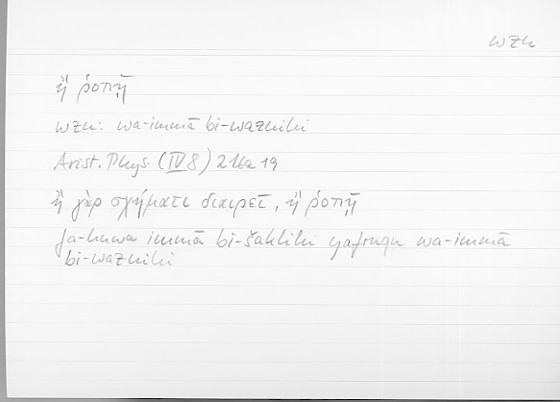 wzn
ἢ ῥοπῇ
wzn: wa-immā bi-waznihi
Arist. Phys. (IV 8) 216a 19
ἢ γὰρ σχήματι διαιρεῖ, ἢ ῥοπῇ
fa-huwa immā bi-šaklihi yafruqu wa-immā
bi-waznihi